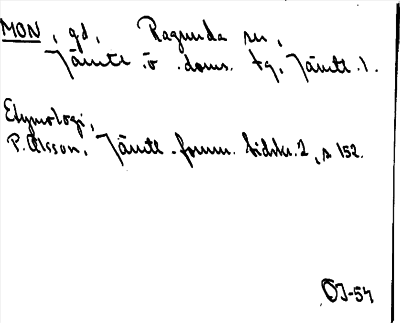 MON, gd, Ragunda sn,
Jämtl. ö. doms. tg, Jämtl. l.
Etymologi,
P. Olsson, Jämtl. fornm. tidskr. 2, s 152.
OJ-54